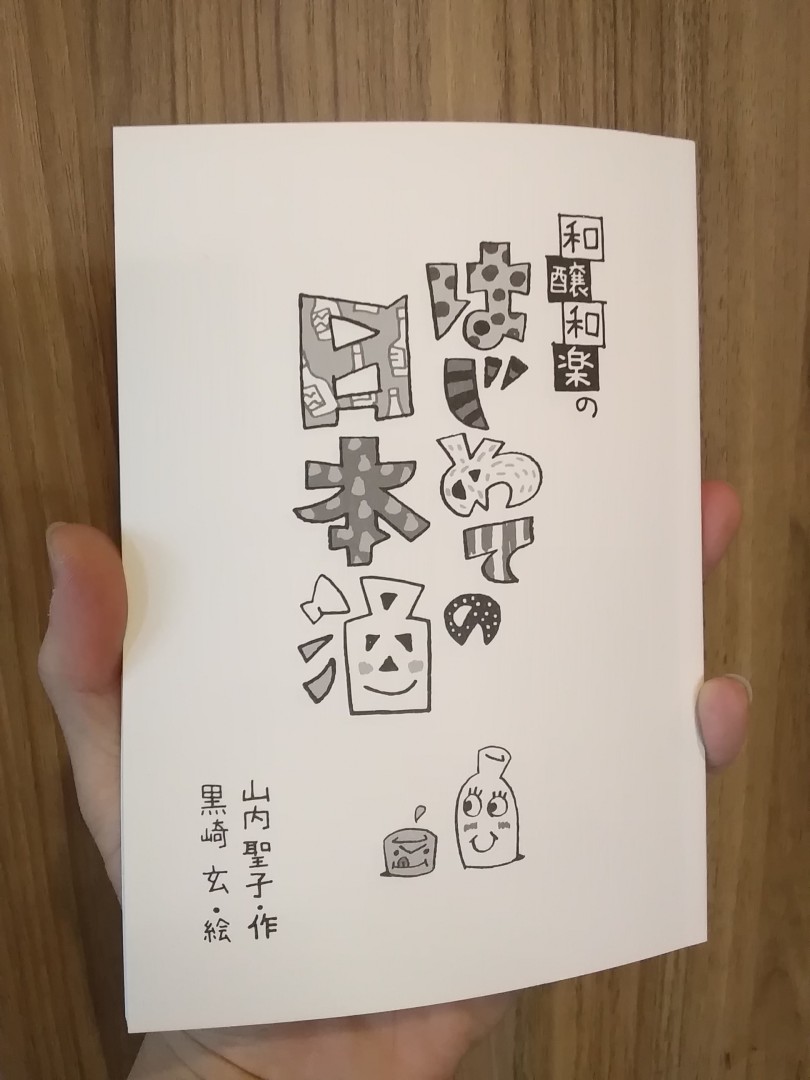 和醸和楽の
はじめての
日本酒
山内聖子・作
黒崎玄・絵